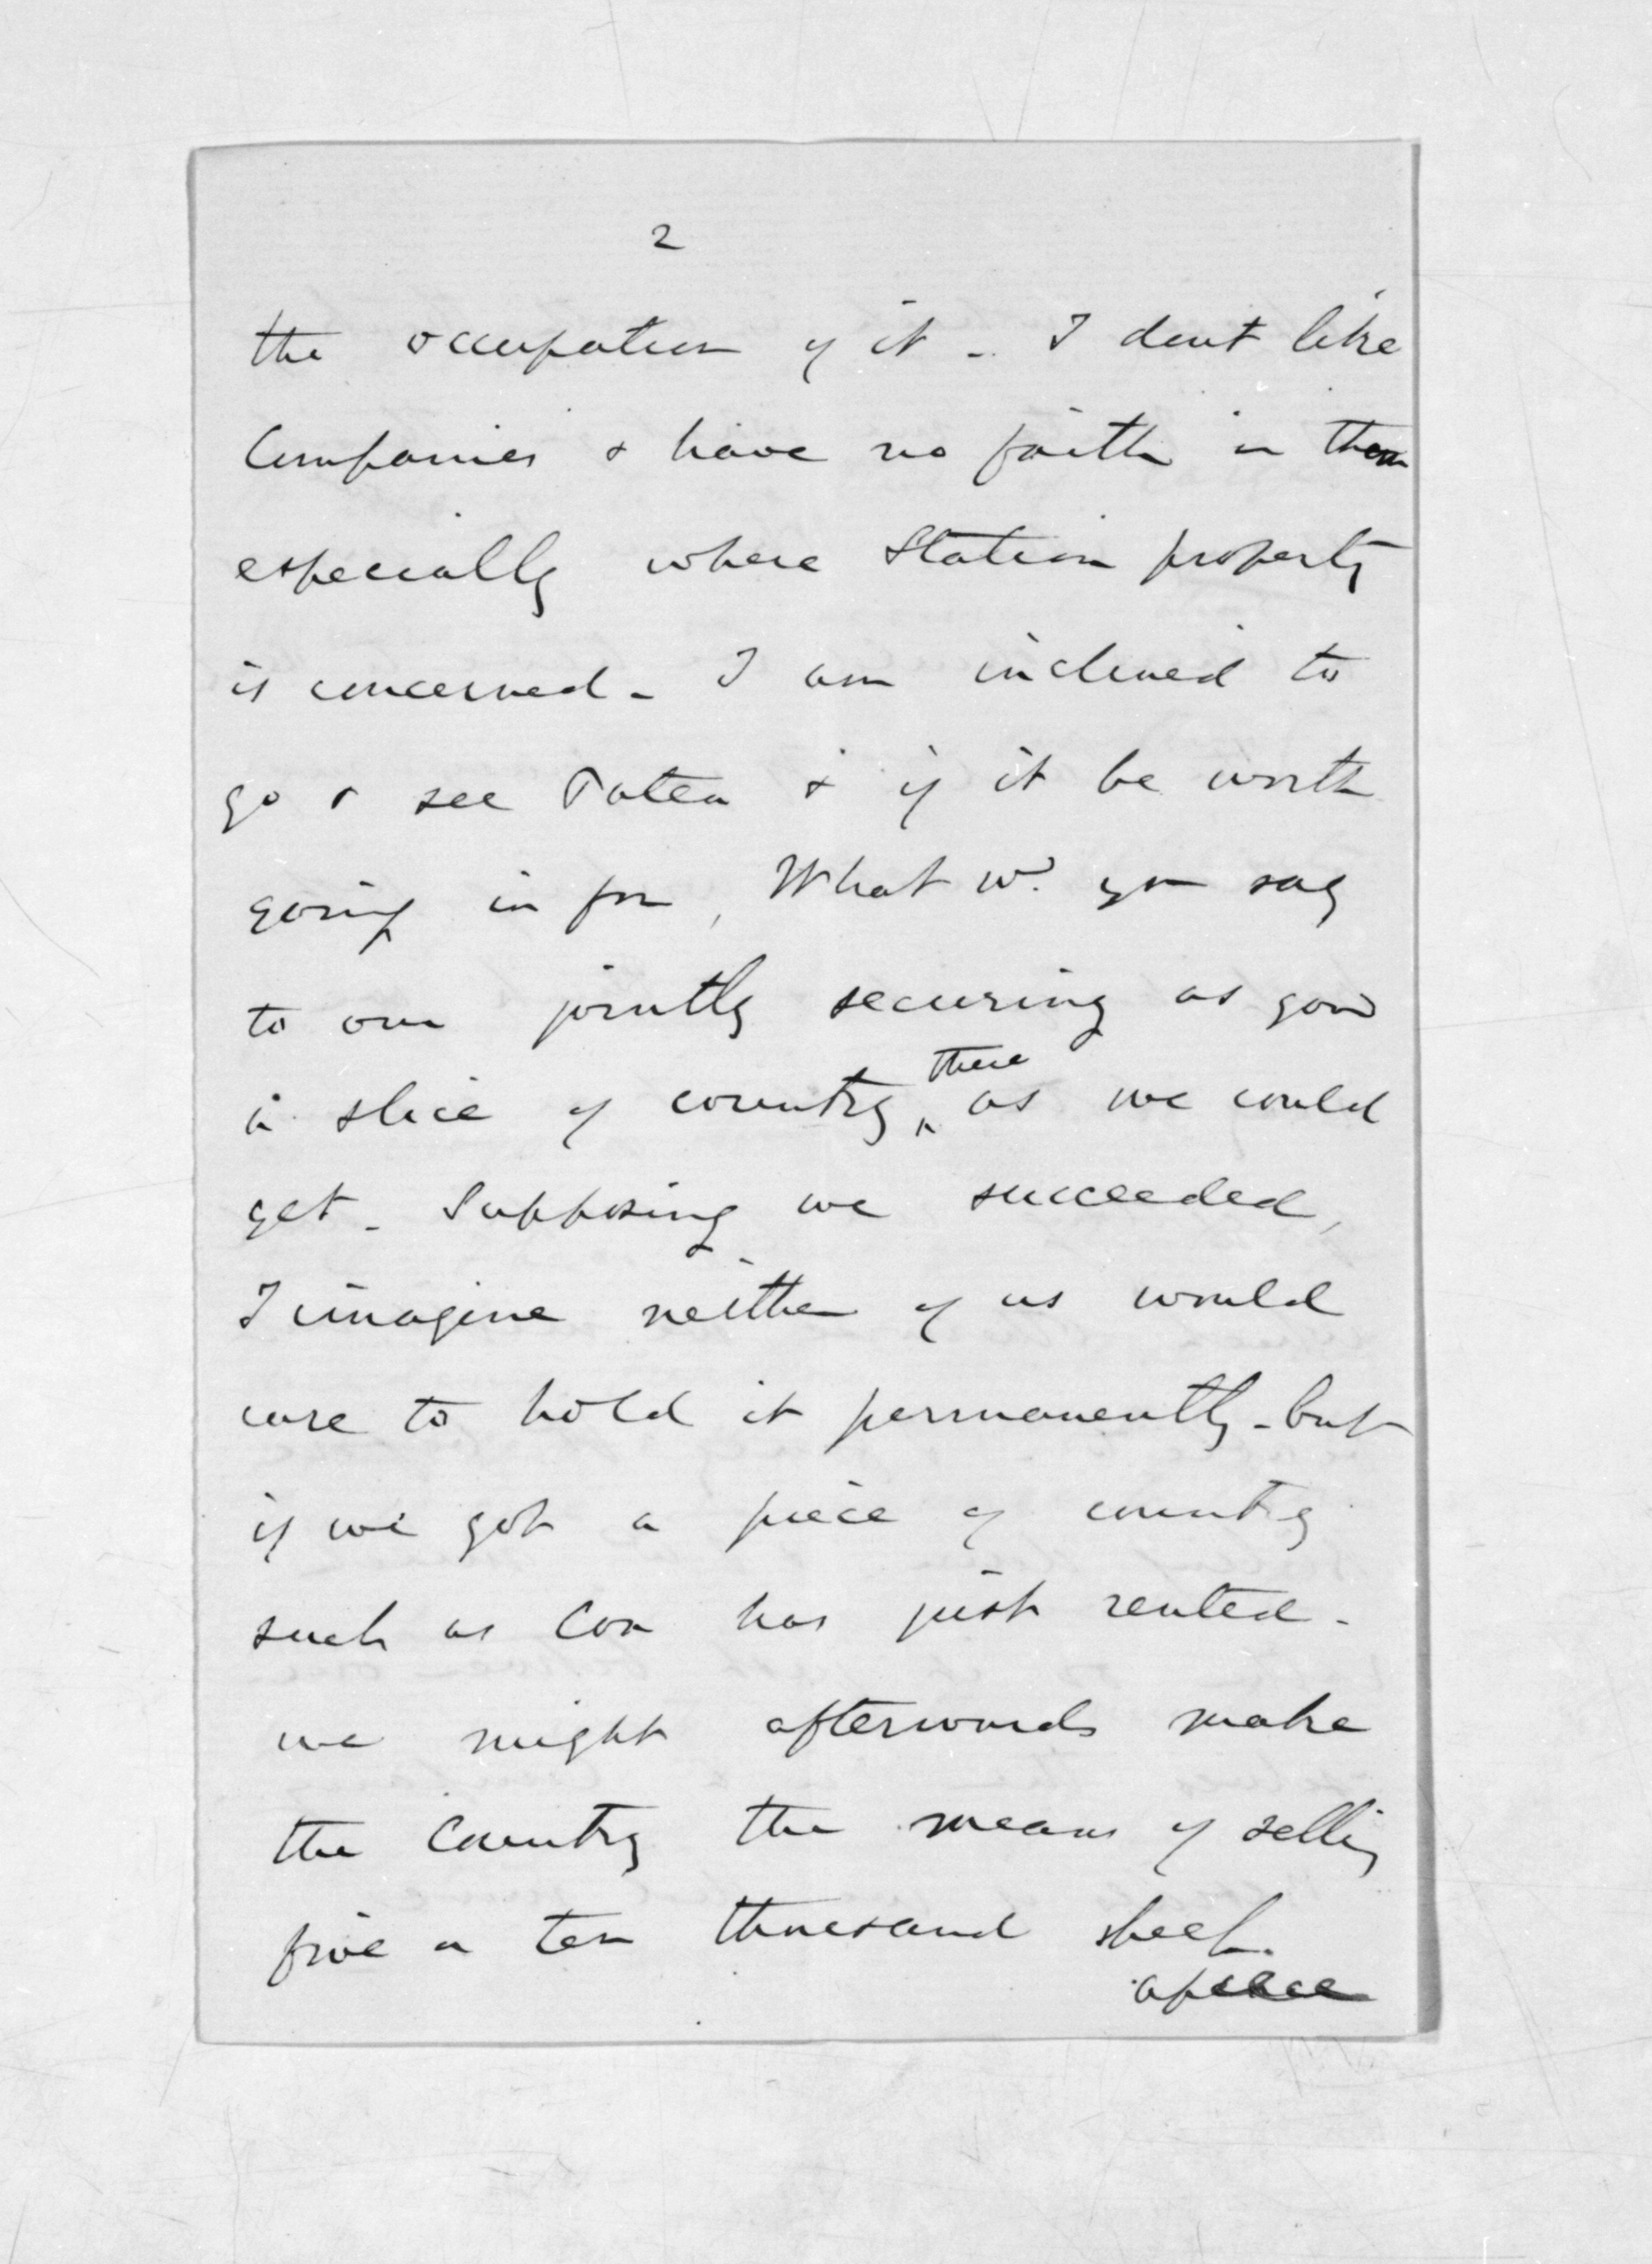 2
the occupation of it - I dont like
Companies & have no faith in them
especially where Station property
is concerned - I am inclined to
go & see Patea & if it be worth
going in for, What wd. you say
to our jointly securing as good
a slice of country there as we could
get - Supposing we succeeded,
I imagine neither of us would
care to hold it permanently - but
if we got a piece of country
such as Cox has just rented -
we might afterwards make
the Country the means of selling
five or ten thousand sheep.
apiece